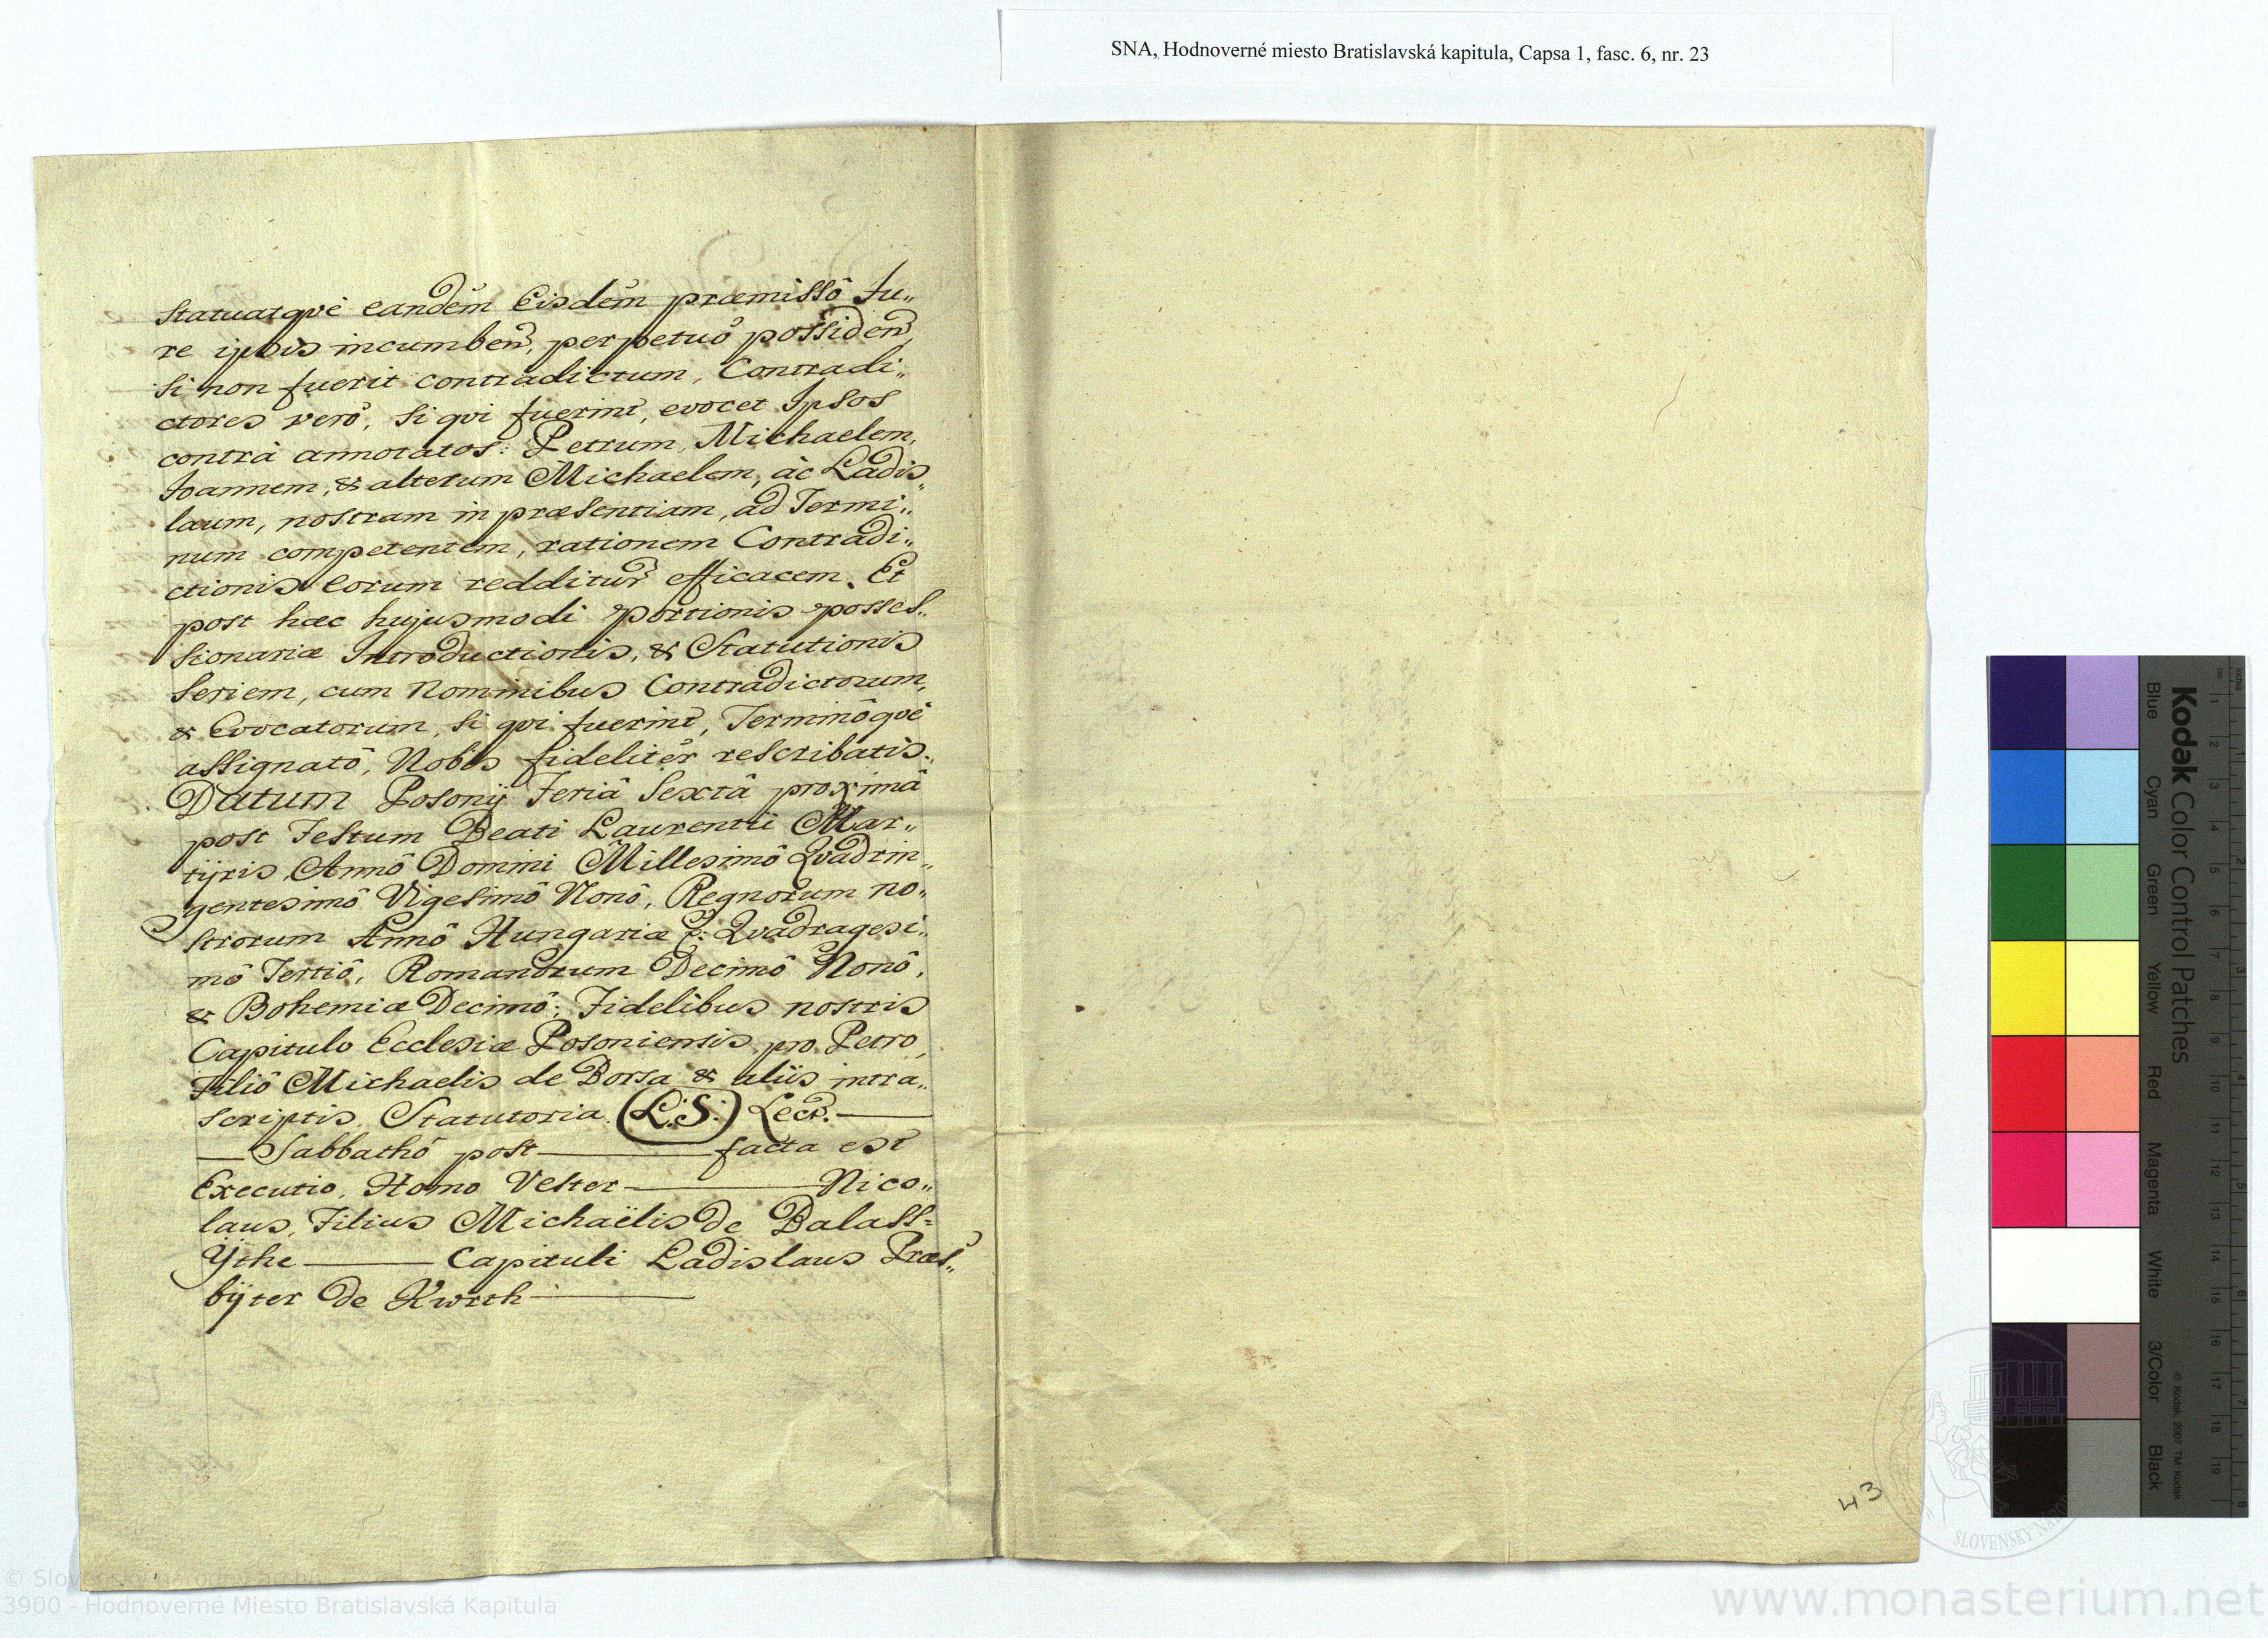 SNA, Hodnoverné miesto Bratislavská kapitula, Capsa 1, fasc. 6, nr. 23
Statuatqvè eandem Eisdem præmissô Ju„
re ipsis incumben, perpetuô possiden,
si non fuerit contradictum, Contradi„
ctores verô, si qvi fuerint, evocet Ipsos
contrà annotatos: Petrum, Michaelem,
Joannem, & alterum Michaelem, àc Ladis„
laum, nostram in præsentiam, ad Termi„
num competentem, rationem Contradi„
ctionis eorum redditur efficacem. Et
post hæc hujusmodi portionis posses„
sionariæ Introductionis, & Statutionis
Seriem, cum Nominibus Contradictorum,
& Evocatorum, si qvi fuerint, Terminôqvè
assignatô, Nobis fidelitèr rescribatis.
Datum Posonÿ Feriâ Sextâ proximâ
post Festum Beati Laurentii Mar„
tÿris, Annô Domini Millesimô Qvadrin„
gentesimô Vigesimô Nonô, Regnorum no„
strorum Annô Hungariæ &: Qvadragesi„
mô Tertiô, Romanorum Decimô Nonô,
& Bohemiæ Decimô; Fidelibus nostris
Capitulo Ecclesiæ Posoniensis pro Petro,
Filiô Michaelis de Borsa & aliis intra„
scriptis, Statutoria. (L.S.) Lect.
Sabbathô post facta est
Executio, Homo Vester Nico„
laus, Filius Michaëlis de Balass=
Ÿthe Capituli Ladislaus Præs„
bÿter de Kwrth
43
Kodak Color Control Patches
Blue Cyan Green Yellow Red Magenta White 3/Color Black
© Kodak, 2007 TM: Kodak
© Slovenský národný archív
3900 - Hodnoverné Miesto Bratislavská Kapitula
www.monasterium.net